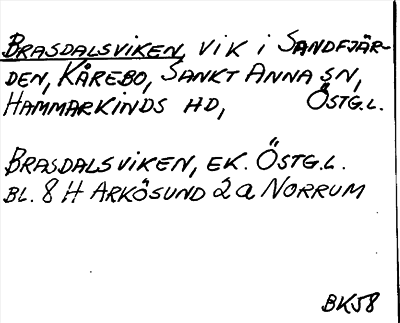 BRASDALSVIKEN, VIK I SANDFJÄR-
DEN, KÅREBO, SANKT ANNA SN,
HAMMARKINDS HD, ÖSTG.L.
BRASDALSVIKEN, EK. ÖSTG.L.
BL. 8 H ARKÖSUND 2 a NORRUM
BK58